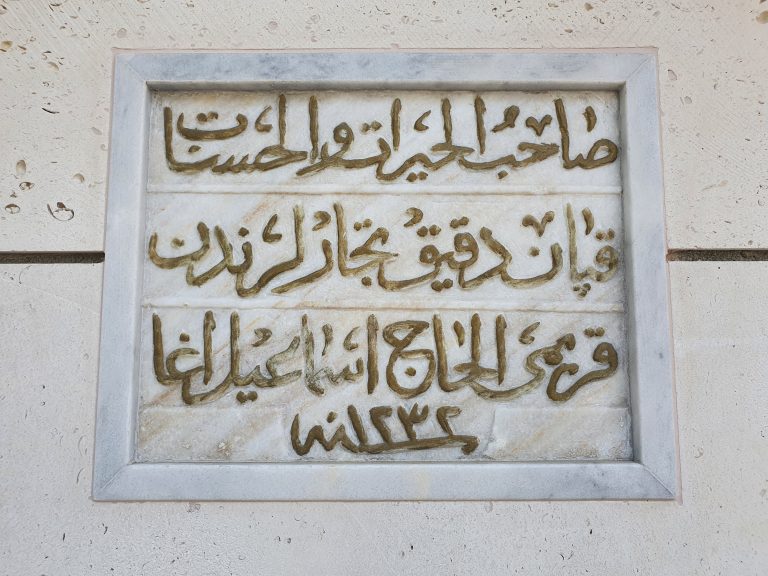 صاحب الخيرات والحسنات
قپان دقيق تجارلرندن
قريمى الحاج اسماعيل اغا
سنه ١٢٣٢